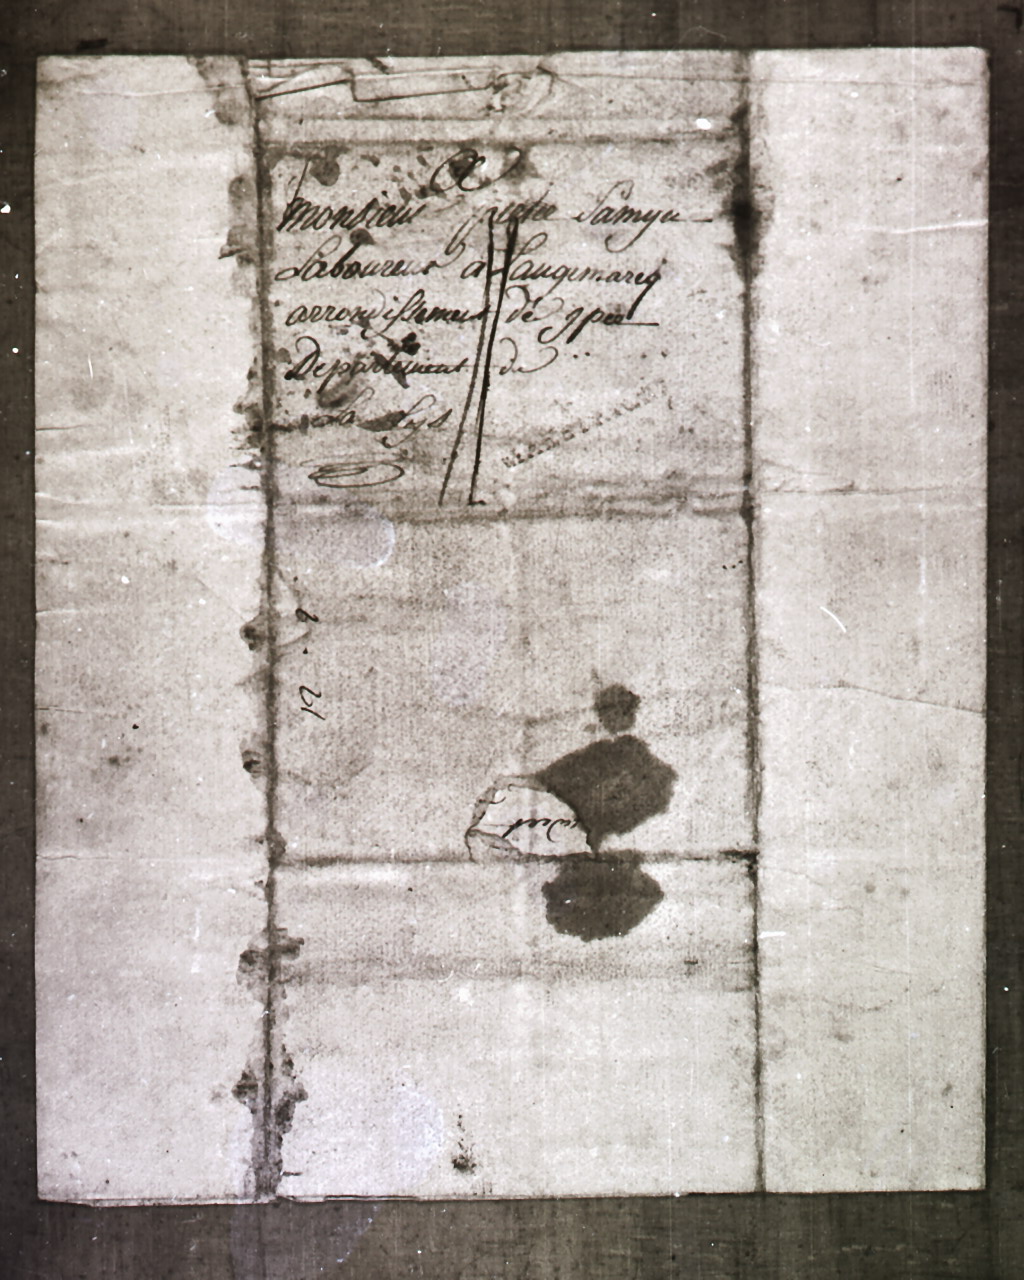 A
Monsieur pietre Samyn
Laboureur a Langemarcq
arrondissement de ypre
Departement de
la Lys